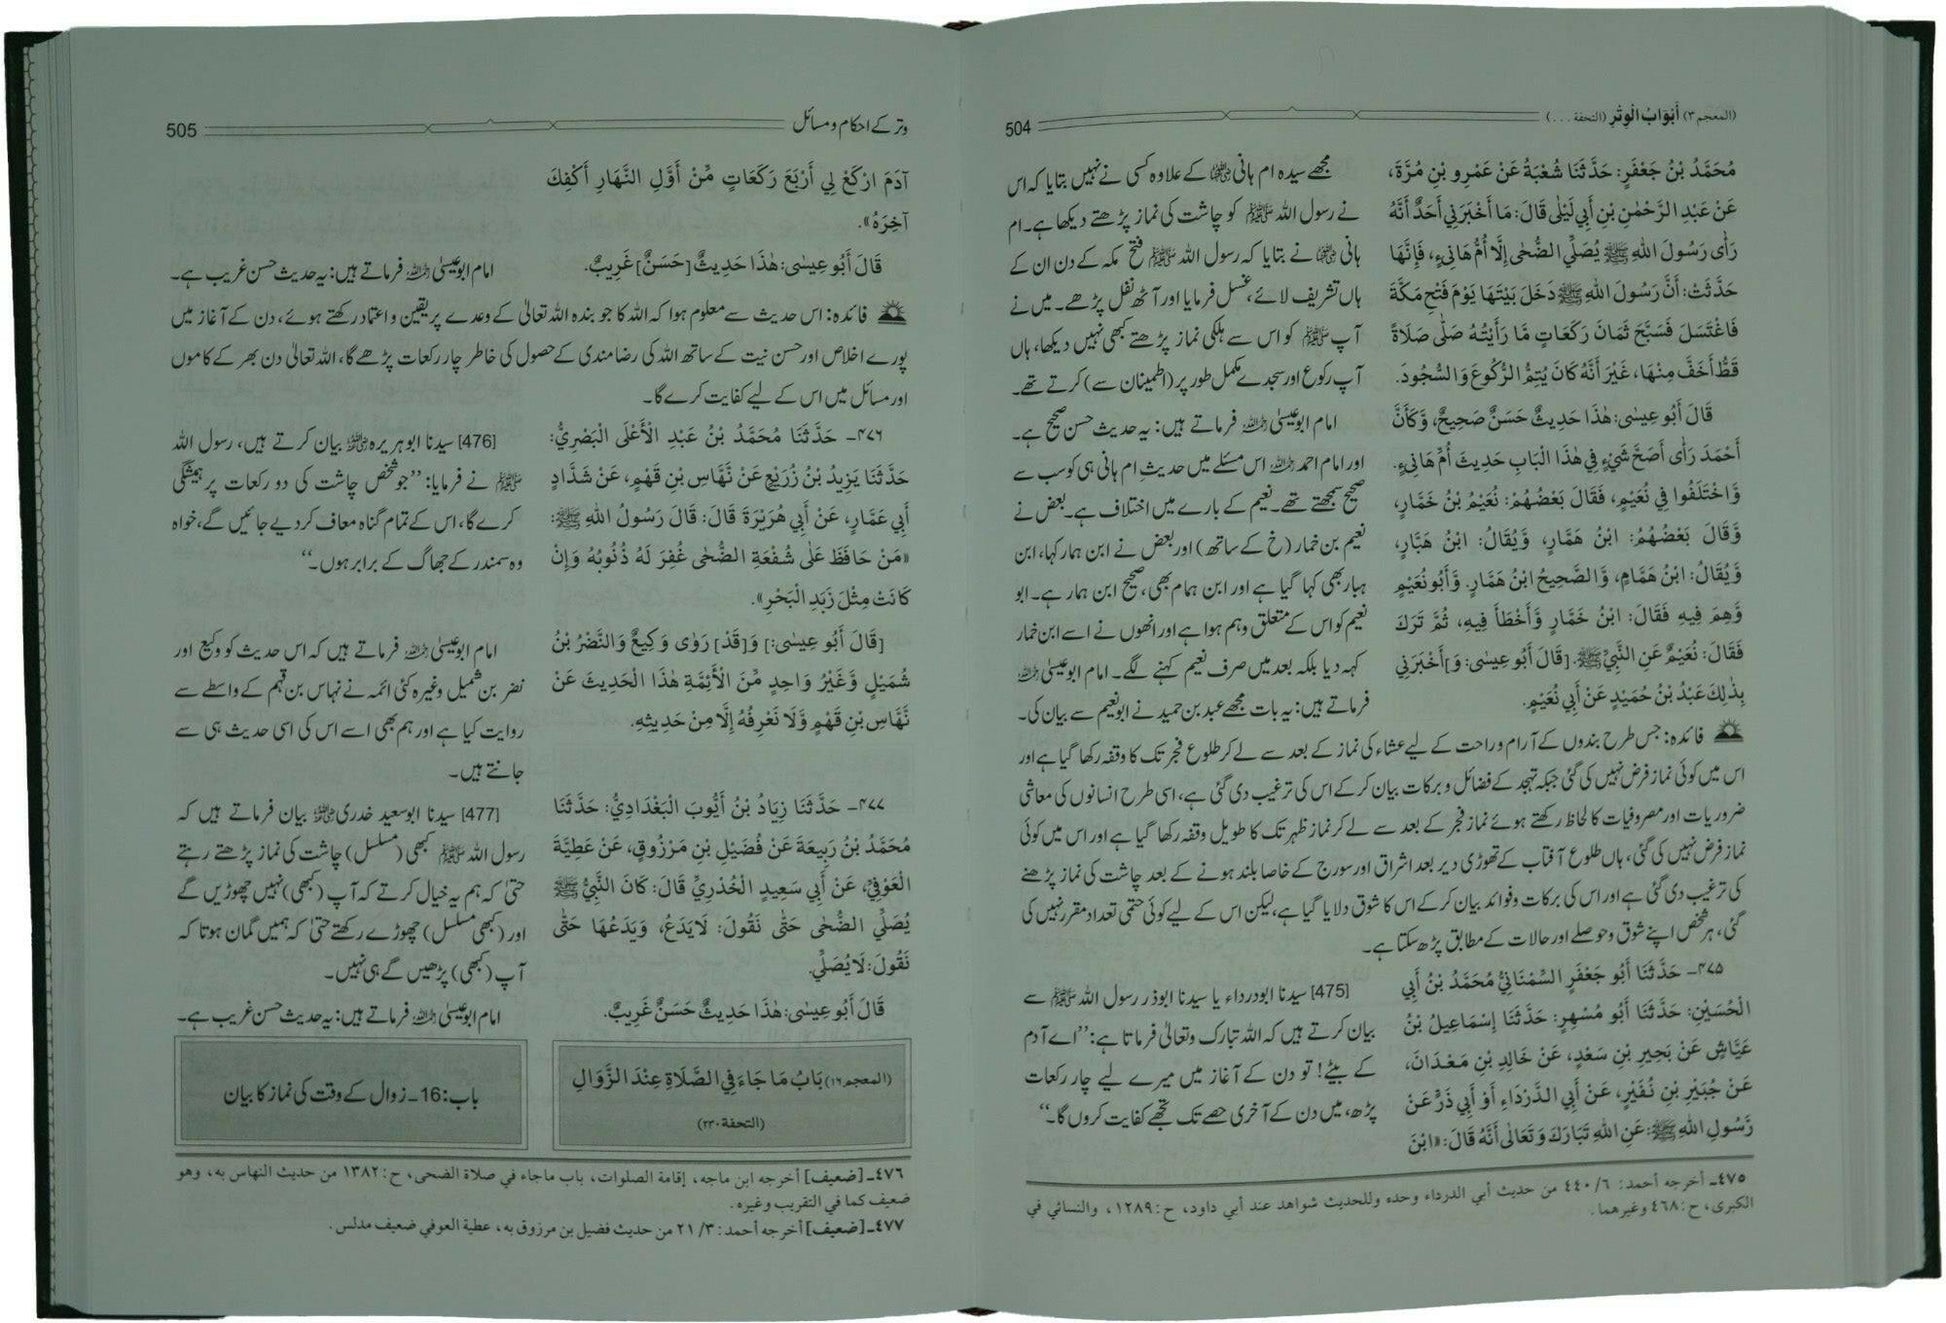 (المعجم ٣) أَبْوَابُ الْوِتْرِ (التحفة . . .)
504
مُحَمَّدُ بْنُ جَعْفَرٍ: حَدَّثَنَا شُعْبَةُ عَنْ عَمْرِو بْنِ مُرَّةَ،
عَنْ عَبْدِ الرَّحْمٰنِ بْنِ أَبِي لَيْلٰى قَالَ: مَا أَخْبَرَنِي أَحَدٌ أَنَّهُ
رَأٰى رَسُولَ اللهِ ﷺ يُصَلِّي الضُّحٰى إِلَّا أُمُّ هَانِىءٍ، فَإِنَّهَا
حَدَّثَتْ: أَنَّ رَسُولَ اللهِ ﷺ دَخَلَ بَيْتَهَا يَوْمَ فَتْحِ مَكَّةَ
فَاغْتَسَلَ فَسَبَّحَ ثَمَانَ رَكَعَاتٍ مَّا رَأَيْتُهُ صَلّٰى صَلَاةً
قَطُّ أَخَفَّ مِنْهَا، غَيْرَ أَنَّهُ كَانَ يُتِمُّ الرُّكُوعَ وَالسُّجُودَ.
قَالَ أَبُو عِيسٰى: هٰذَا حَدِيثٌ حَسَنٌ صَحِيحٌ، وَّكَأَنَّ
أَحْمَدَ رَأٰى أَصَحَّ شَيْءٍ فِي هٰذَا الْبَابِ حَدِيثَ أُمِّ هَانِىءٍ.
وَّاخْتَلَفُوا فِي نُعَيْمٍ، فَقَالَ بَعْضُهُمْ: نُعَيْمُ بْنُ خَمَّارٍ،
وَّقَالَ بَعْضُهُمْ: ابْنُ هَمَّارٍ، وَّيُقَالُ: ابْنُ هَبَّارٍ،
وَّيُقَالُ: ابْنُ هَمَّامٍ، وَّالصَّحِيحُ ابْنُ هَمَّارٍ. وَّأَبُو نُعَيْمٍ
وَّهِمَ فِيهِ فَقَالَ: ابْنُ خَمَّارٍ وَّأَخْطَأَ فِيهِ، ثُمَّ تَرَكَ
فَقَالَ: نُعَيْمٌ عَنِ النَّبِيِّ ﷺ. [قَالَ أَبُو عِيسٰى: وَ]أَخْبَرَنِي
بِذٰلِكَ عَبْدُ بْنُ حُمَيْدٍ عَنْ أَبِي نُعَيْمٍ.
مجھے سیدہ ام ہانی ؓ کے علاوہ کسی نے نہیں بتایا کہ اس
نے رسول اللہ ﷺ کو چاشت کی نماز پڑھتے دیکھا ہے۔ ام
ہانی ؓ نے بتایا کہ رسول اللہ ﷺ فتح مکہ کے دن ان کے
ہاں تشریف لائے، غسل فرمایا اور آٹھ نفل پڑھے۔ میں نے
آپ ﷺ کو اس سے ہلکی نماز پڑھتے کبھی نہیں دیکھا، ہاں
آپ رکوع اور سجدے مکمل طور پر (اطمینان سے) کرتے تھے۔
امام ابوعیسیٰ ؒ فرماتے ہیں: یہ حدیث حسن صحیح ہے۔
اور امام احمد ؒ اس مسئلے میں حدیثِ ام ہانی ہی کو سب سے
صحیح سمجھتے تھے۔ نعیم کے بارے میں اختلاف ہے۔ بعض نے
نعیم بن خمار (خ کے ساتھ) اور بعض نے ابن ہمار کہا، ابن
ہبار بھی کہا گیا ہے اور ابن ہمام بھی، صحیح ابن ہمار ہے۔ ابو
نعیم کو اس کے متعلق وہم ہوا ہے اور انھوں نے اسے ابن خمار
کہہ دیا بلکہ بعد میں صرف نعیم کہنے لگے۔ امام ابوعیسیٰ ؒ
فرماتے ہیں: یہ بات مجھے عبد بن حمید نے ابونعیم سے بیان کی۔
فائدہ: جس طرح بندوں کے آرام و راحت کے لیے عشاء کی نماز کے بعد سے لے کر طلوع فجر تک کا وقفہ رکھا گیا ہے اور
اس میں کوئی نماز فرض نہیں کی گئی جبکہ تہجد کے فضائل و برکات بیان کر کے اس کی ترغیب دی گئی ہے، اسی طرح انسانوں کی معاشی
ضروریات اور مصروفیات کا لحاظ رکھتے ہوئے نماز فجر کے بعد سے لے کر نماز ظہر تک کا طویل وقفہ رکھا گیا ہے اور اس میں کوئی
نماز فرض نہیں کی گئی، ہاں طلوع آفتاب کے تھوڑی دیر بعد اشراق اور سورج کے خاصا بلند ہونے کے بعد چاشت کی نماز پڑھنے
کی ترغیب دی گئی ہے اور اس کی برکات و فوائد بیان کر کے اس کا شوق دلایا گیا ہے، لیکن اس کے لیے کوئی حتمی تعداد مقرر نہیں کی
گئی، ہر شخص اپنے شوق و حوصلے اور حالات کے مطابق پڑھ سکتا ہے۔
٤٧٥ - حَدَّثَنَا أَبُو جَعْفَرٍ السِّمْنَانِيُّ مُحَمَّدُ بْنُ أَبِي
الْحُسَيْنِ: حَدَّثَنَا أَبُو مُسْهِرٍ: حَدَّثَنَا إِسْمَاعِيلُ بْنُ
عَيَّاشٍ عَنْ بَحِيرِ بْنِ سَعْدٍ، عَنْ خَالِدِ بْنِ مَعْدَانَ،
عَنْ جُبَيْرِ بْنِ نُفَيْرٍ، عَنْ أَبِي الدَّرْدَاءِ أَوْ أَبِي ذَرٍّ عَنْ
رَّسُولِ اللهِ ﷺ: عَنِ اللهِ تَبَارَكَ وَتَعَالٰى أَنَّهُ قَالَ: «ابْنَ
[475] سیدنا ابودرداء یا سیدنا ابوذر رسول اللہ ﷺ سے
بیان کرتے ہیں کہ اللہ تبارک وتعالیٰ فرماتا ہے: ’’اے آدم
کے بیٹے! تو دن کے آغاز میں میرے لیے چار رکعات
پڑھ، میں دن کے آخری حصے تک تجھے کفایت کروں گا۔‘‘
٤٧٥ـ أخرجه أحمد: ٤٤٠/٦ من حديث أبي الدرداء وحده وللحديث شواهد عند أبي داود، ح: ١٢٨٩، والنسائي في
الكبرى، ح: ٤٦٨ وغيرهما.
وتر کے احکام و مسائل
505
آدَمَ ارْكَعْ لِي أَرْبَعَ رَكَعَاتٍ مِّنْ أَوَّلِ النَّهَارِ أَكْفِكَ
آخِرَهُ».
قَالَ أَبُو عِيسٰى: هٰذَا حَدِيثٌ [حَسَنٌ] غَرِيبٌ.
امام ابوعیسیٰ ؒ فرماتے ہیں: یہ حدیث حسن غریب ہے۔
فائدہ: اس حدیث سے معلوم ہوا کہ اللہ کا جو بندہ اللہ تعالیٰ کے وعدے پر یقین و اعتماد رکھتے ہوئے، دن کے آغاز میں
پورے اخلاص اور حسن نیت کے ساتھ اللہ کی رضا مندی کے حصول کی خاطر چار رکعات پڑھے گا، اللہ تعالیٰ دن بھر کے کاموں
اور مسائل میں اس کے لیے کفایت کرے گا۔
٤٧٦ - حَدَّثَنَا مُحَمَّدُ بْنُ عَبْدِ الْأَعْلَى الْبَصْرِيُّ:
حَدَّثَنَا يَزِيدُ بْنُ زُرَيْعٍ عَنْ نَّهَّاسِ بْنِ قَهْمٍ، عَنْ شَدَّادٍ
أَبِي عَمَّارٍ، عَنْ أَبِي هُرَيْرَةَ قَالَ: قَالَ رَسُولُ اللهِ ﷺ:
«مَنْ حَافَظَ عَلٰى شُفْعَةِ الضُّحٰى غُفِرَ لَهُ ذُنُوبُهُ وَإِنْ
كَانَتْ مِثْلَ زَبَدِ الْبَحْرِ».
[قَالَ أَبُو عِيسٰى:] وَ[قَدْ] رَوٰى وَكِيعٌ وَالنَّضْرُ بْنُ
شُمَيْلٍ وَّغَيْرُ وَاحِدٍ مِّنَ الْأَئِمَّةِ هٰذَا الْحَدِيثَ عَنْ
نَّهَّاسِ بْنِ قَهْمٍ وَّلَا نَعْرِفُهُ إِلَّا مِنْ حَدِيثِهِ.
[476] سیدنا ابوہریرہ ؓ بیان کرتے ہیں، رسول اللہ
ﷺ نے فرمایا: ’’جو شخص چاشت کی دو رکعات پر ہمیشگی
کرے گا، اس کے تمام گناہ معاف کر دیے جائیں گے، خواہ
وہ سمندر کے جھاگ کے برابر ہوں۔‘‘
امام ابوعیسیٰ ؒ فرماتے ہیں کہ اس حدیث کو وکیع اور
نضر بن شمیل وغیرہ کئی ائمہ نے نہاس بن قہم کے واسطے سے
روایت کیا ہے اور ہم بھی اسے اس کی اسی حدیث ہی سے
جانتے ہیں۔
٤٧٧ - حَدَّثَنَا زِيَادُ بْنُ أَيُّوبَ الْبَغْدَادِيُّ: حَدَّثَنَا
مُحَمَّدُ بْنُ رَبِيعَةَ عَنْ فُضَيْلِ بْنِ مَرْزُوقٍ، عَنْ عَطِيَّةَ
الْعَوْفِيِّ، عَنْ أَبِي سَعِيدٍ الْخُدْرِيِّ قَالَ: كَانَ النَّبِيُّ ﷺ
يُصَلِّي الضُّحٰى حَتّٰى نَقُولَ: لَا يَدَعُ، وَيَدَعُهَا حَتّٰى
نَقُولَ: لَا يُصَلِّي.
قَالَ أَبُو عِيسٰى: هٰذَا حَدِيثٌ حَسَنٌ غَرِيبٌ.
[477] سیدنا ابوسعید خدری ؓ بیان فرماتے ہیں کہ
رسول اللہ ﷺ کبھی (مسلسل) چاشت کی نماز پڑھتے رہتے
حتیٰ کہ ہم یہ خیال کرتے کہ آپ (کبھی) نہیں چھوڑیں گے
اور (کبھی مسلسل) چھوڑے رکھتے حتیٰ کہ ہمیں گمان ہوتا کہ
آپ (کبھی) پڑھیں گے ہی نہیں۔
امام ابوعیسیٰ ؒ فرماتے ہیں: یہ حدیث حسن غریب ہے۔
(المعجم ١٦) بَابُ مَا جَاءَ فِي الصَّلَاةِ عِنْدَ الزَّوَالِ
(التحفة ٢٣٠)
باب: 16۔ زوال کے وقت کی نماز کا بیان
٤٧٦ـ [ضعيف] أخرجه ابن ماجه، إقامة الصلوات، باب ماجاء في صلاة الضحى، ح: ١٣٨٢ من حديث النهاس به، وهو
ضعيف كما في التقريب وغيره.
٤٧٧ـ [ضعيف] أخرجه أحمد: ٢١/٣ من حديث فضيل بن مرزوق به، عطية العوفي ضعيف مدلس.